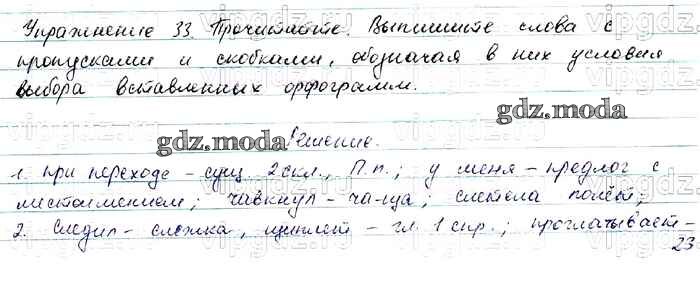 Упражнение 33. Прочитайте. Выпишите слова с
пропусками и скобками, обозначая в них условия
выбора вставленных орфограмм.
gdz.moda
gdz.moda
Решение.
1. при переходе – сущ. 2 скл., П.п.; у меня – предлог с
местоимением; чавкнул – ча-ща; слетела полёт;
2. следил – слежка, щиплет – гл. 1 спр.; проглатывает –
23